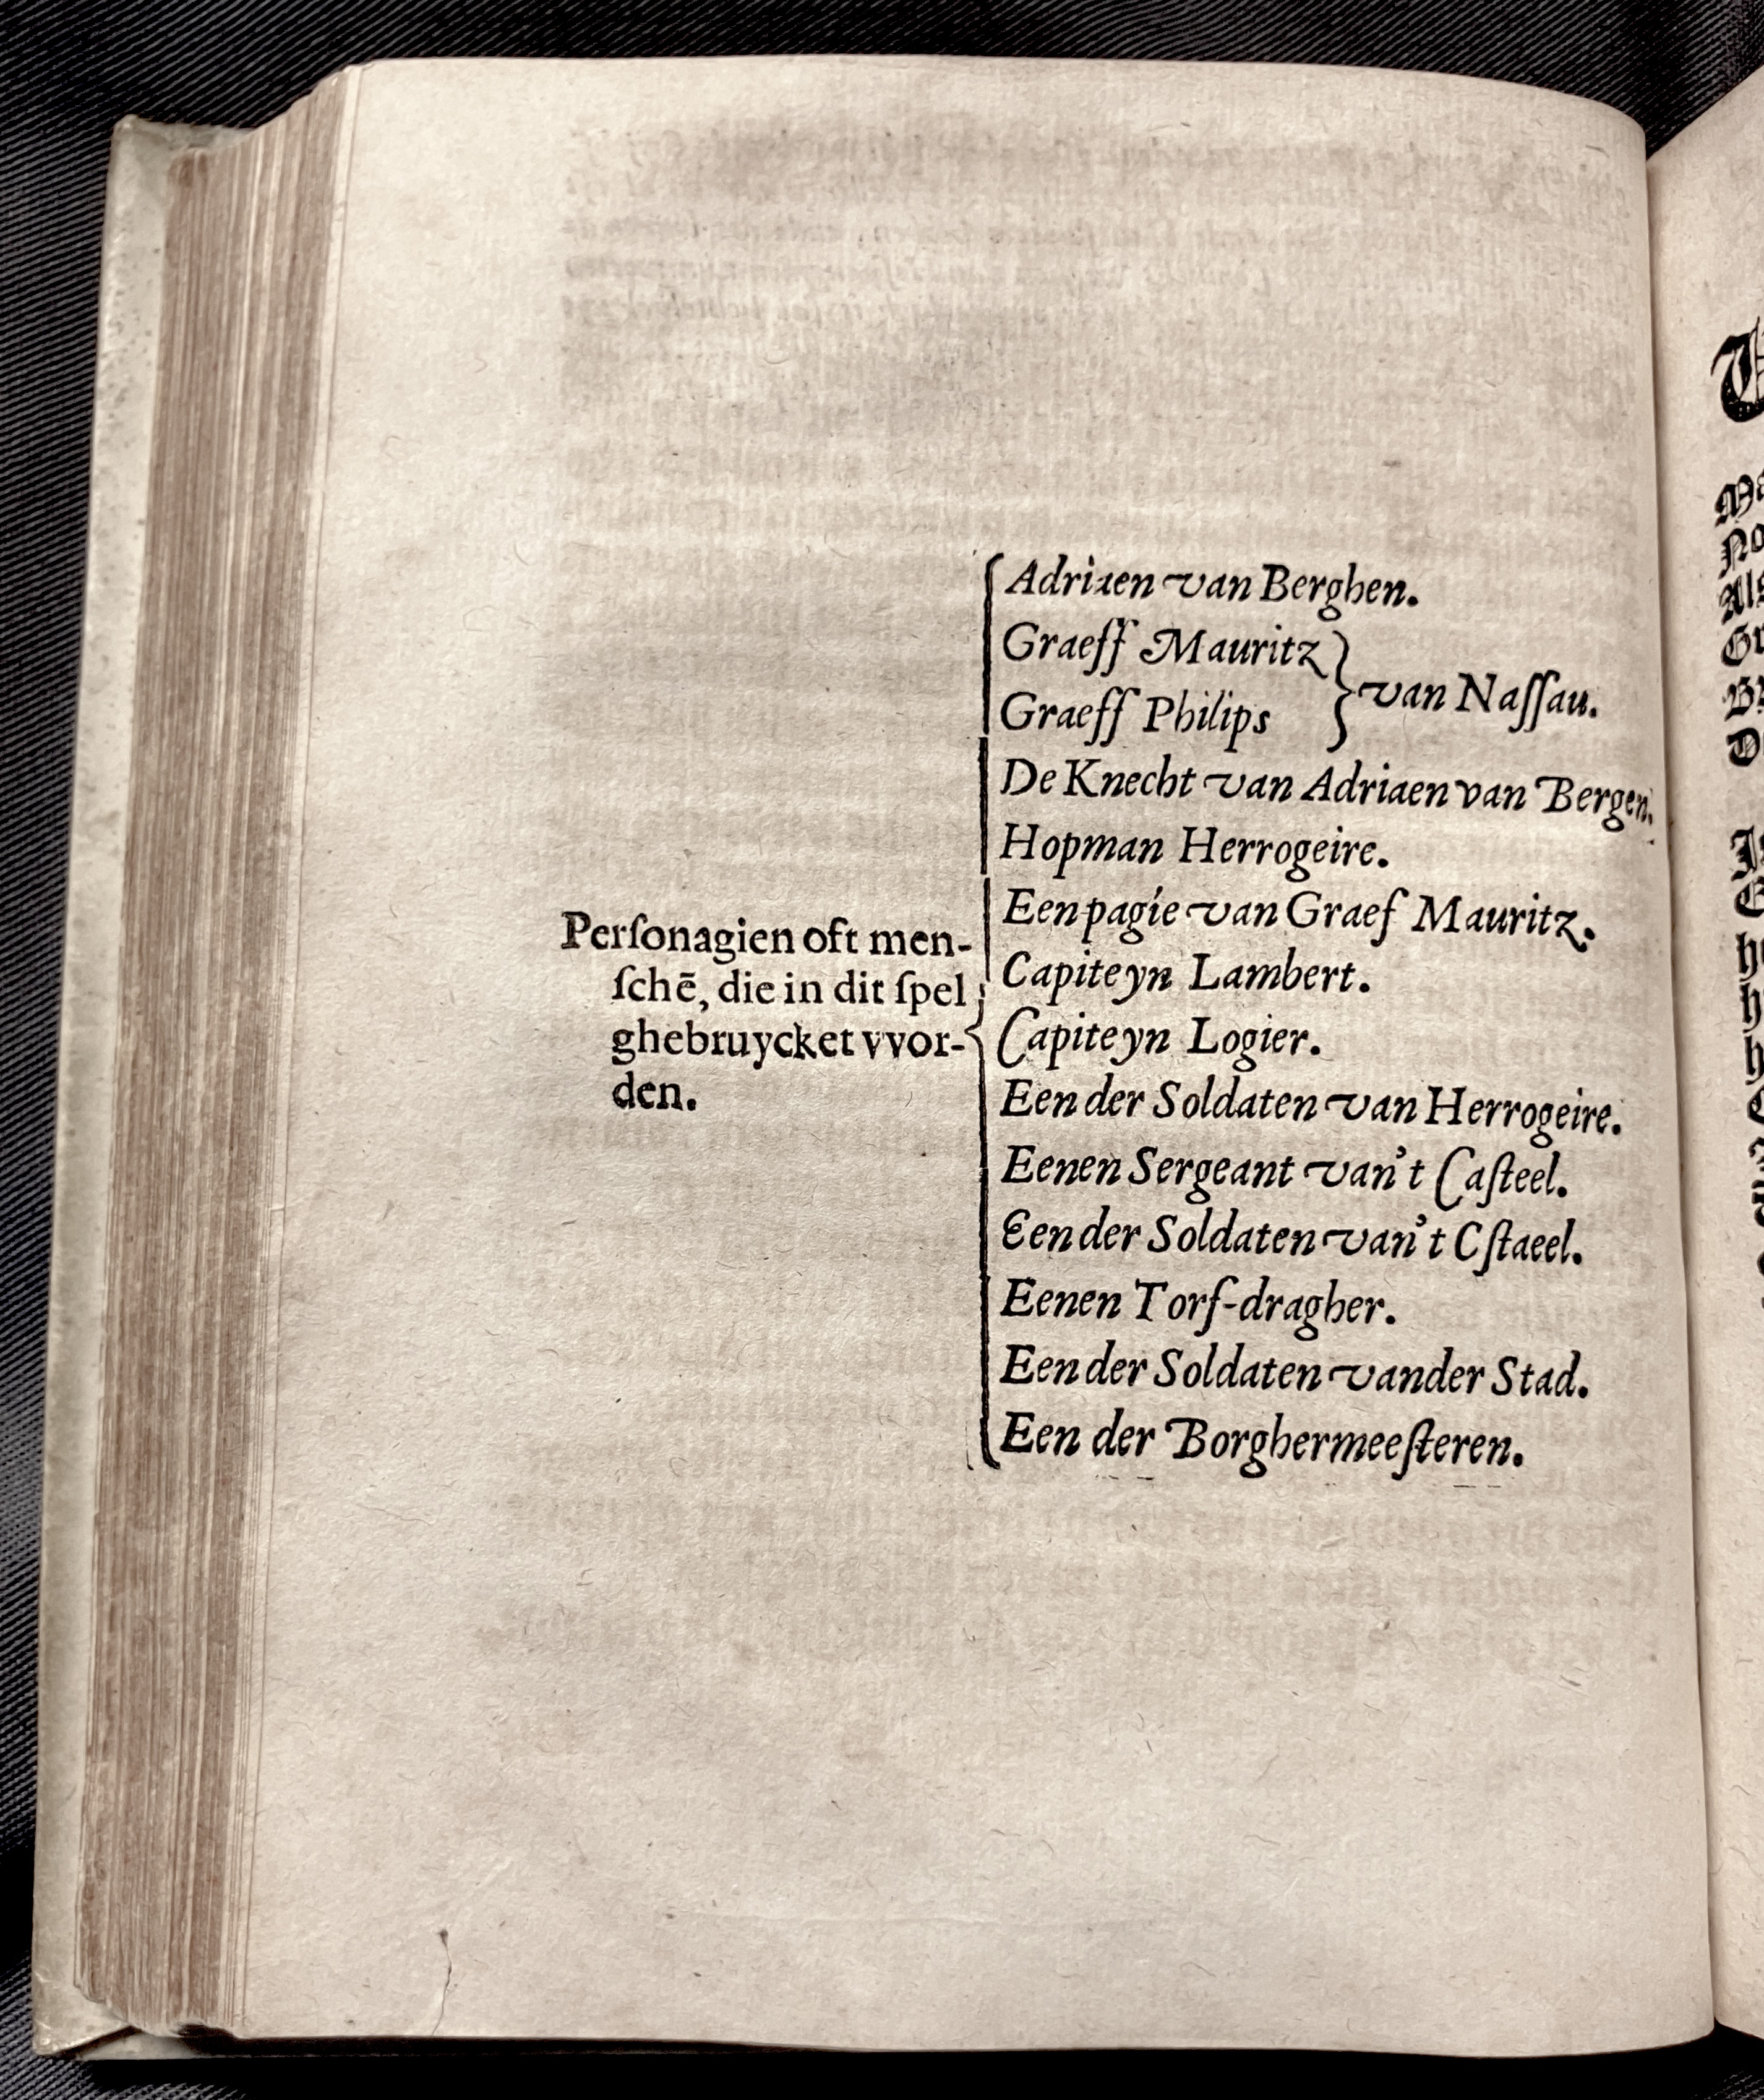 Perſonagien oft men-
ſchē, die in dit ſpel
ghebruycket vvor-
den.
Adriaen van Berghen.
Graeff Mauritz
Graeff Philips
van Naſſau.
De Knecht van Adriaen van Bergen.
Hopman Herrogeire.
Een pagie van Graef Mauritz.
Capiteyn Lambert.
Capiteyn Logier.
Een der Soldaten van Herrogeire.
Eenen Sergeant van't Caſteel.
Een der Soldaten van't Cſtaeel.
Eenen Torf-dragher.
Een der Soldaten vander Stad.
Een der Borghermeeſteren.